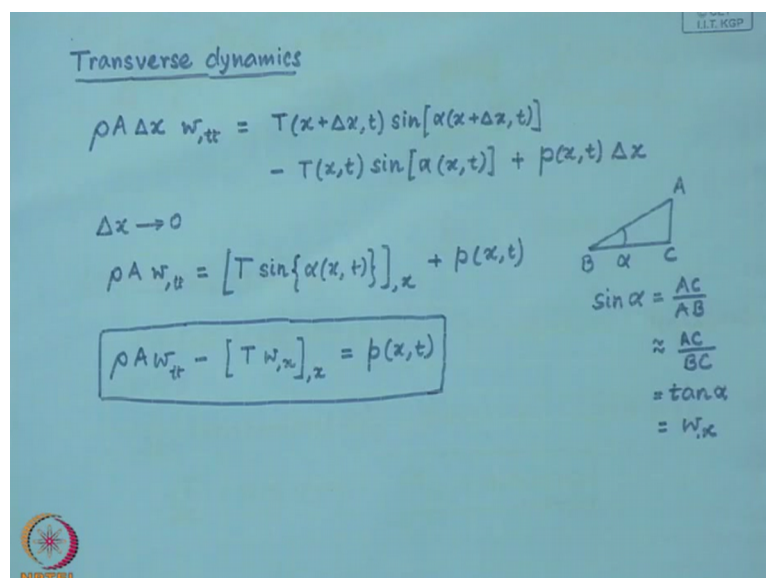 I.I.T. KGP
Transverse dynamics
ρA Δx w,tt = T(x+Δx,t) sin[α(x+Δx,t)]
- T(x,t) sin[α(x,t)] + p(x,t) Δx
Δx → 0
ρA w,tt = [T sin{α(x,t)}],x + p(x,t)
ρA w,tt - [T w,x],x = p(x,t)
A
B α C
sin α = AC/AB
≈ AC/BC
= tan α
= w,x